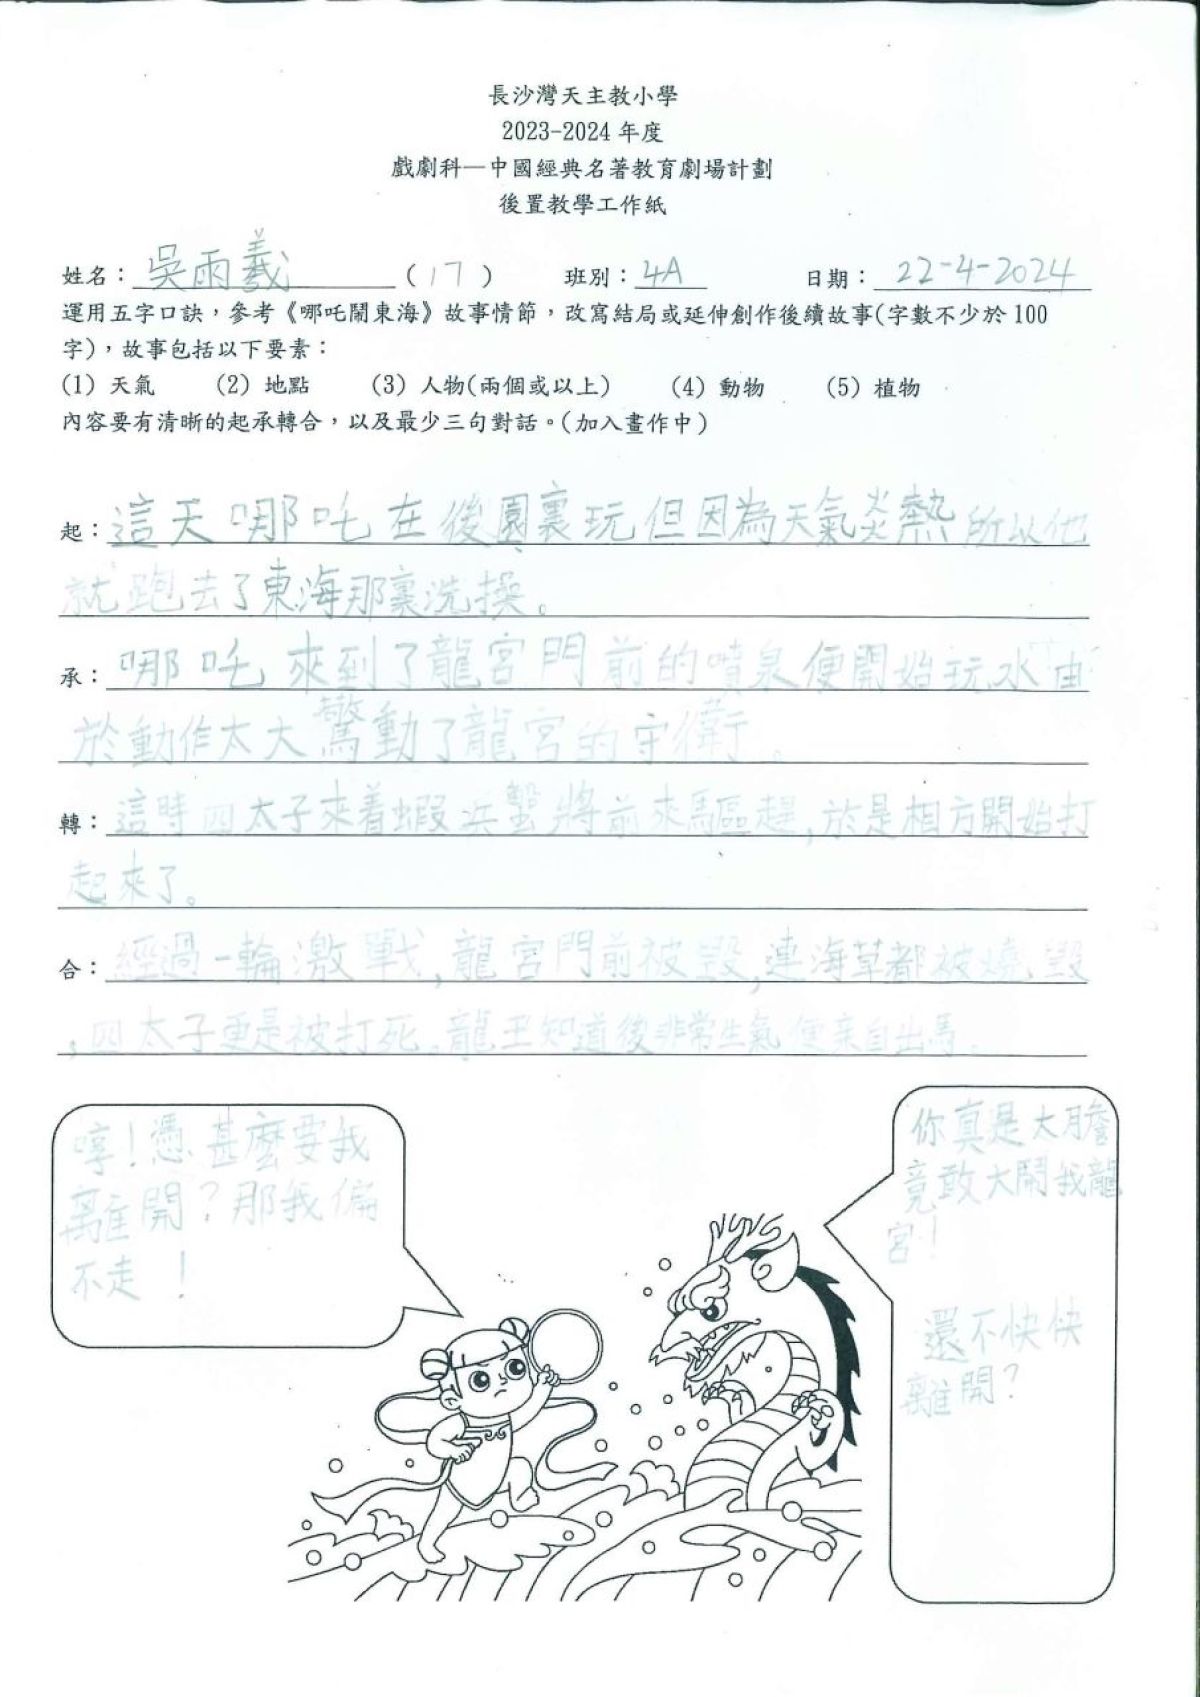 長沙灣天主教小學
2023-2024 年度
戲劇科—中國經典名著教育劇場計劃
後置教學工作紙
姓名：吳雨羲（17） 班別：4A 日期：22-4-2024
運用五字口訣，參考《哪吒鬧東海》故事情節，改寫結局或延伸創作後續故事(字數不少於 100
字)，故事包括以下要素：
(1) 天氣 (2) 地點 (3) 人物(兩個或以上) (4) 動物 (5) 植物
內容要有清晰的起承轉合，以及最少三句對話。(加入畫作中)
起：這天哪吒在後園裏玩但因為天氣炎熱所以他
就跑去了東海那裏洗操。
承：哪吒來到了龍宮門前的噴泉便開始玩水由
於動作太大驚動了龍宮的守衛。
轉：這時四太子來着蝦兵蟹將前來驅趕,於是相方開始打
起來了。
合：經過一輪激戰,龍宮門前被毀,連海草都被燒毀
,四太子更是被打死。龍王知道後非常生氣便亲自出馬。
哼!憑甚麼要我
離開?那我偏
不走!
你真是大膽
竟敢大鬧我龍
宮!
還不快快
離開?